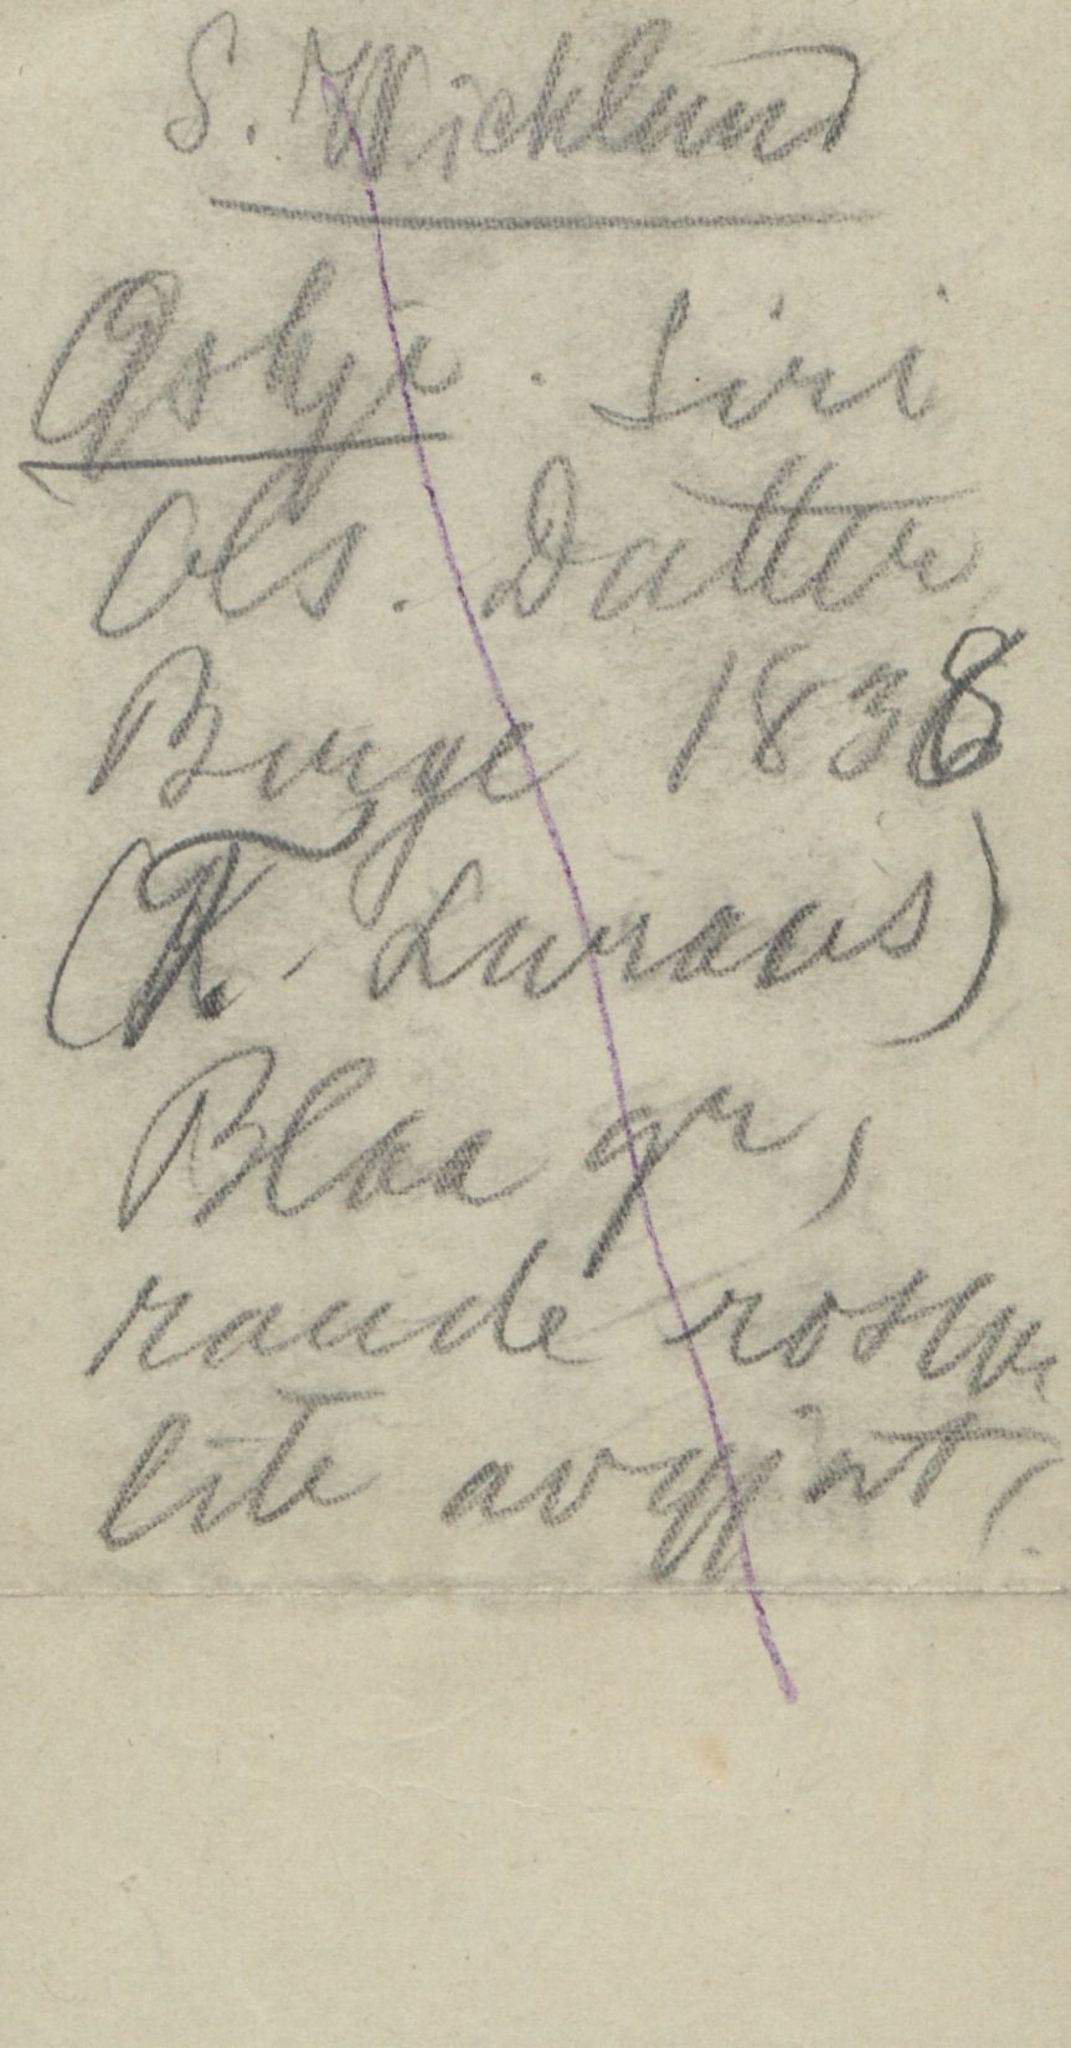 S. Wicklund
Øskje. Siri
Ols. Datter
Borge 1838
(K. Luraas)
Blaa gr,
raude rosur
lite avgjort,